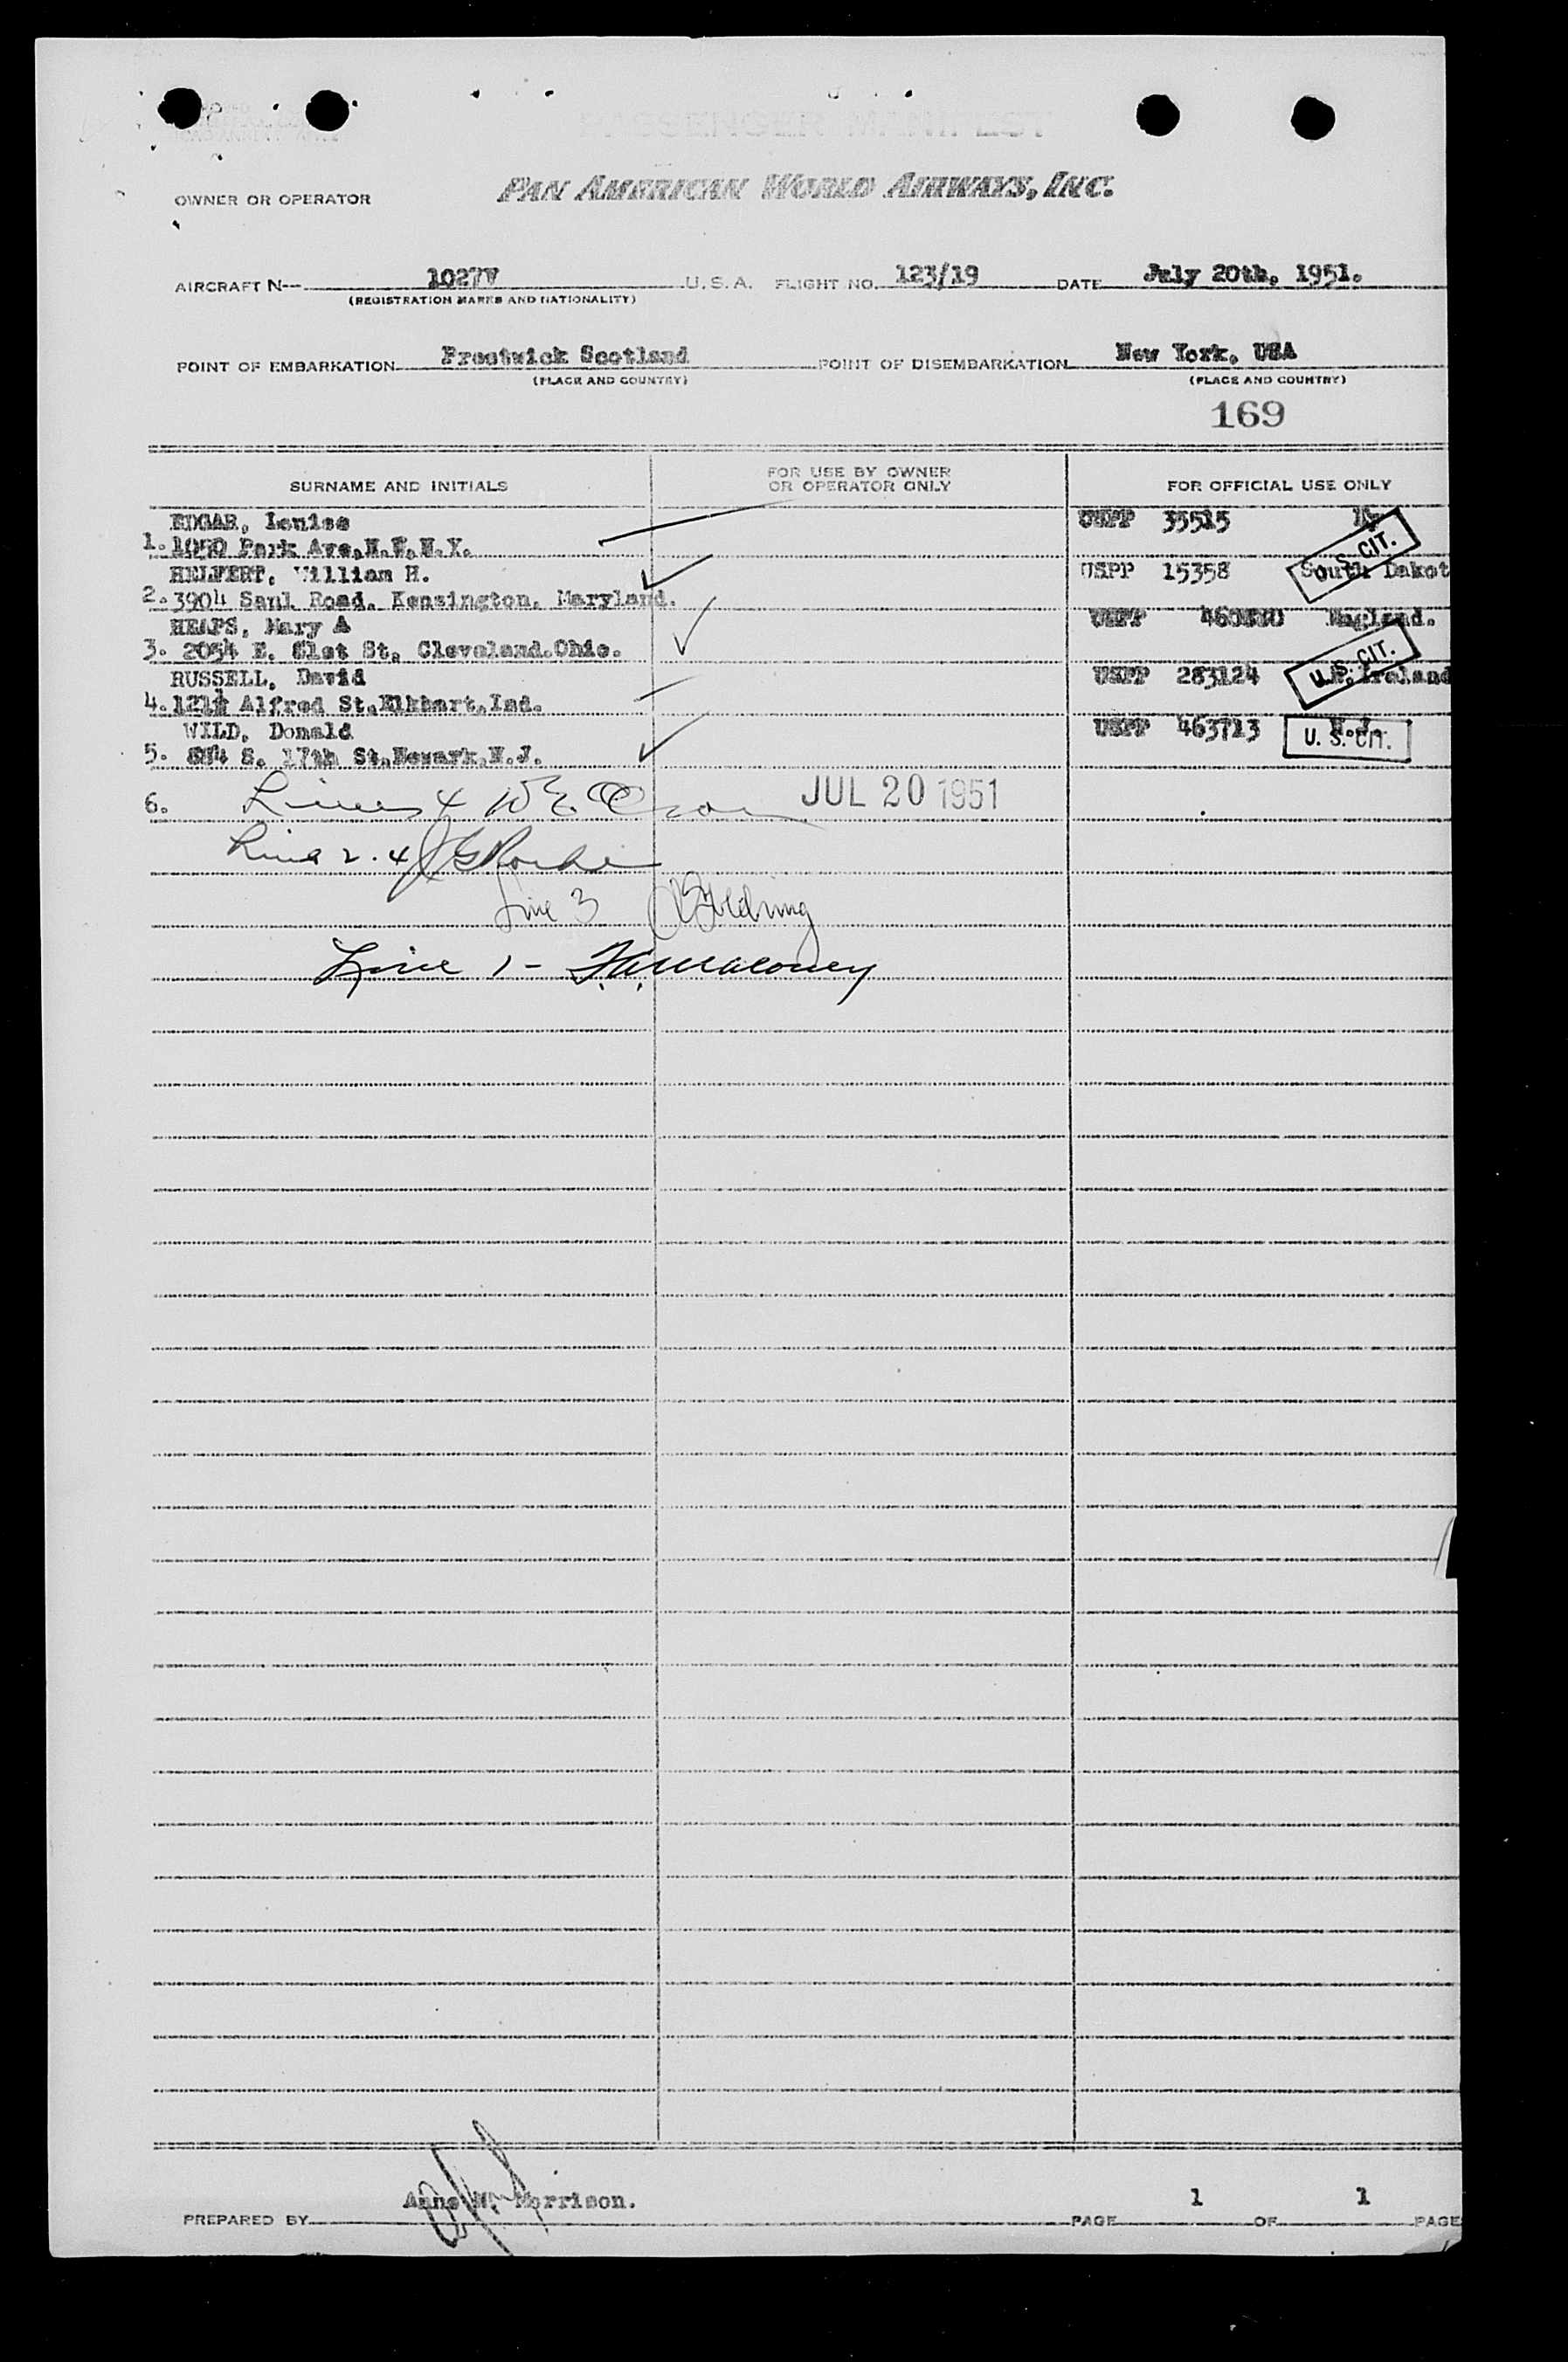 PASSENGER MANIFEST
OWNER OR OPERATOR PAN AMERICAN WORLD AIRWAYS, INC.
AIRCRAFT N-- 1027V U.S.A. FLIGHT NO. 123/19 DATE July 20th, 1951.
(REGISTRATION MARKS AND NATIONALITY)
POINT OF EMBARKATION Prestwick Scotland POINT OF DISEMBARKATION New York, USA
(PLACE AND COUNTRY) (PLACE AND COUNTRY)
169
SURNAME AND INITIALS FOR USE BY OWNER OR OPERATOR ONLY FOR OFFICIAL USE ONLY
EDGAR, Louise USPP 35515
1. 1050 Park Ave,N.Y,N.Y. U. S. CIT.
HELFERT, William H. USPP 15358 South Dakot
2. 3904 Saul Road, Kensington, Maryland.
HEAPS, Mary A USPP England.
3. 2054 E. 81st St, Cleveland.Ohio. U. S. CIT.
RUSSELL, David USPP 283124 N. Ireland
4. 121½ Alfred St,Elkhart,Ind.
WILD, Donald USPP 463713 N.J.
5. S. 17th St,Newark,N.J. U. S. CIT.
6. JUL 20 1951
Line 2.4
Line 3
Line 1- F.A. Maloney
Anne Morrison. 1 1
PREPARED BY PAGE OF PAGE